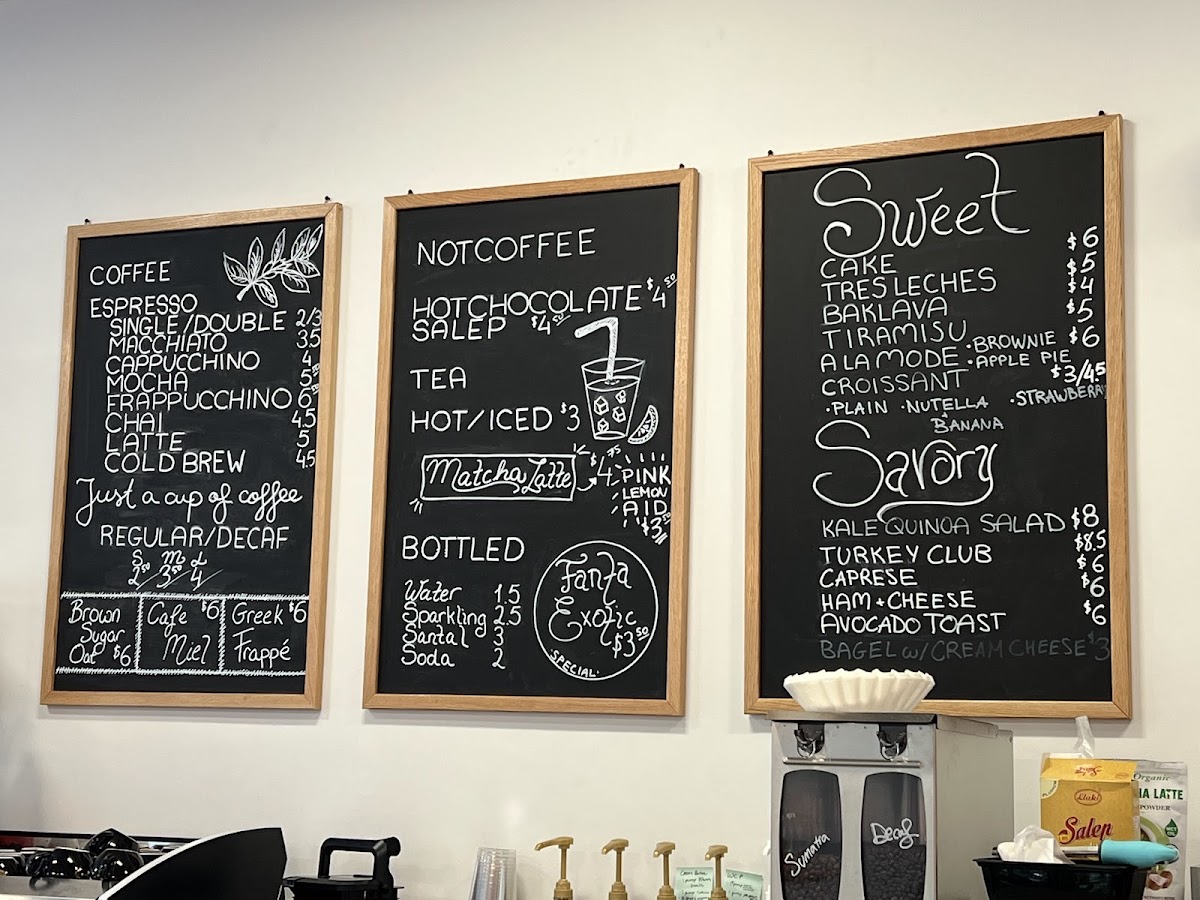 COFFEE
ESPRESSO
SINGLE/DOUBLE 2/3
MACCHIATO 3.5
CAPPUCCHINO 4
MOCHA 5
FRAPPUCCHINO 6
CHAI 4.5
LATTE 5
COLD BREW 4.5
Just a cup of coffee
REGULAR/DECAF
S M L
2.50/3.50/4
Brown Sugar Oat $6
Cafe Miel $6
Greek Frappé $6
NOTCOFFEE
HOTCHOCOLATE $4.50
SALEP $4.50
TEA
HOT/ICED $3
Matcha Latte $4.75
PINK
LEMON
AID
$3.50
BOTTLED
Water 1.5
Sparkling 2.5
Santal 3
Soda 2
Fanta
Exotic
$3.50
SPECIAL.
Sweet
CAKE $6
TRES LECHES $5
BAKLAVA $4
TIRAMISU $5
A LA MODE • BROWNIE • APPLE PIE $6
CROISSANT $3/4.5
• PLAIN • NUTELLA & BANANA • STRAWBERRY
Savory
KALE QUINOA SALAD $8
TURKEY CLUB $8.5
CAPRESE $6
HAM + CHEESE $6
AVOCADO TOAST $6
BAGEL w/ CREAM CHEESE $3
Sumatra
Decaf
Salep
Organic
LATTE
POWDER